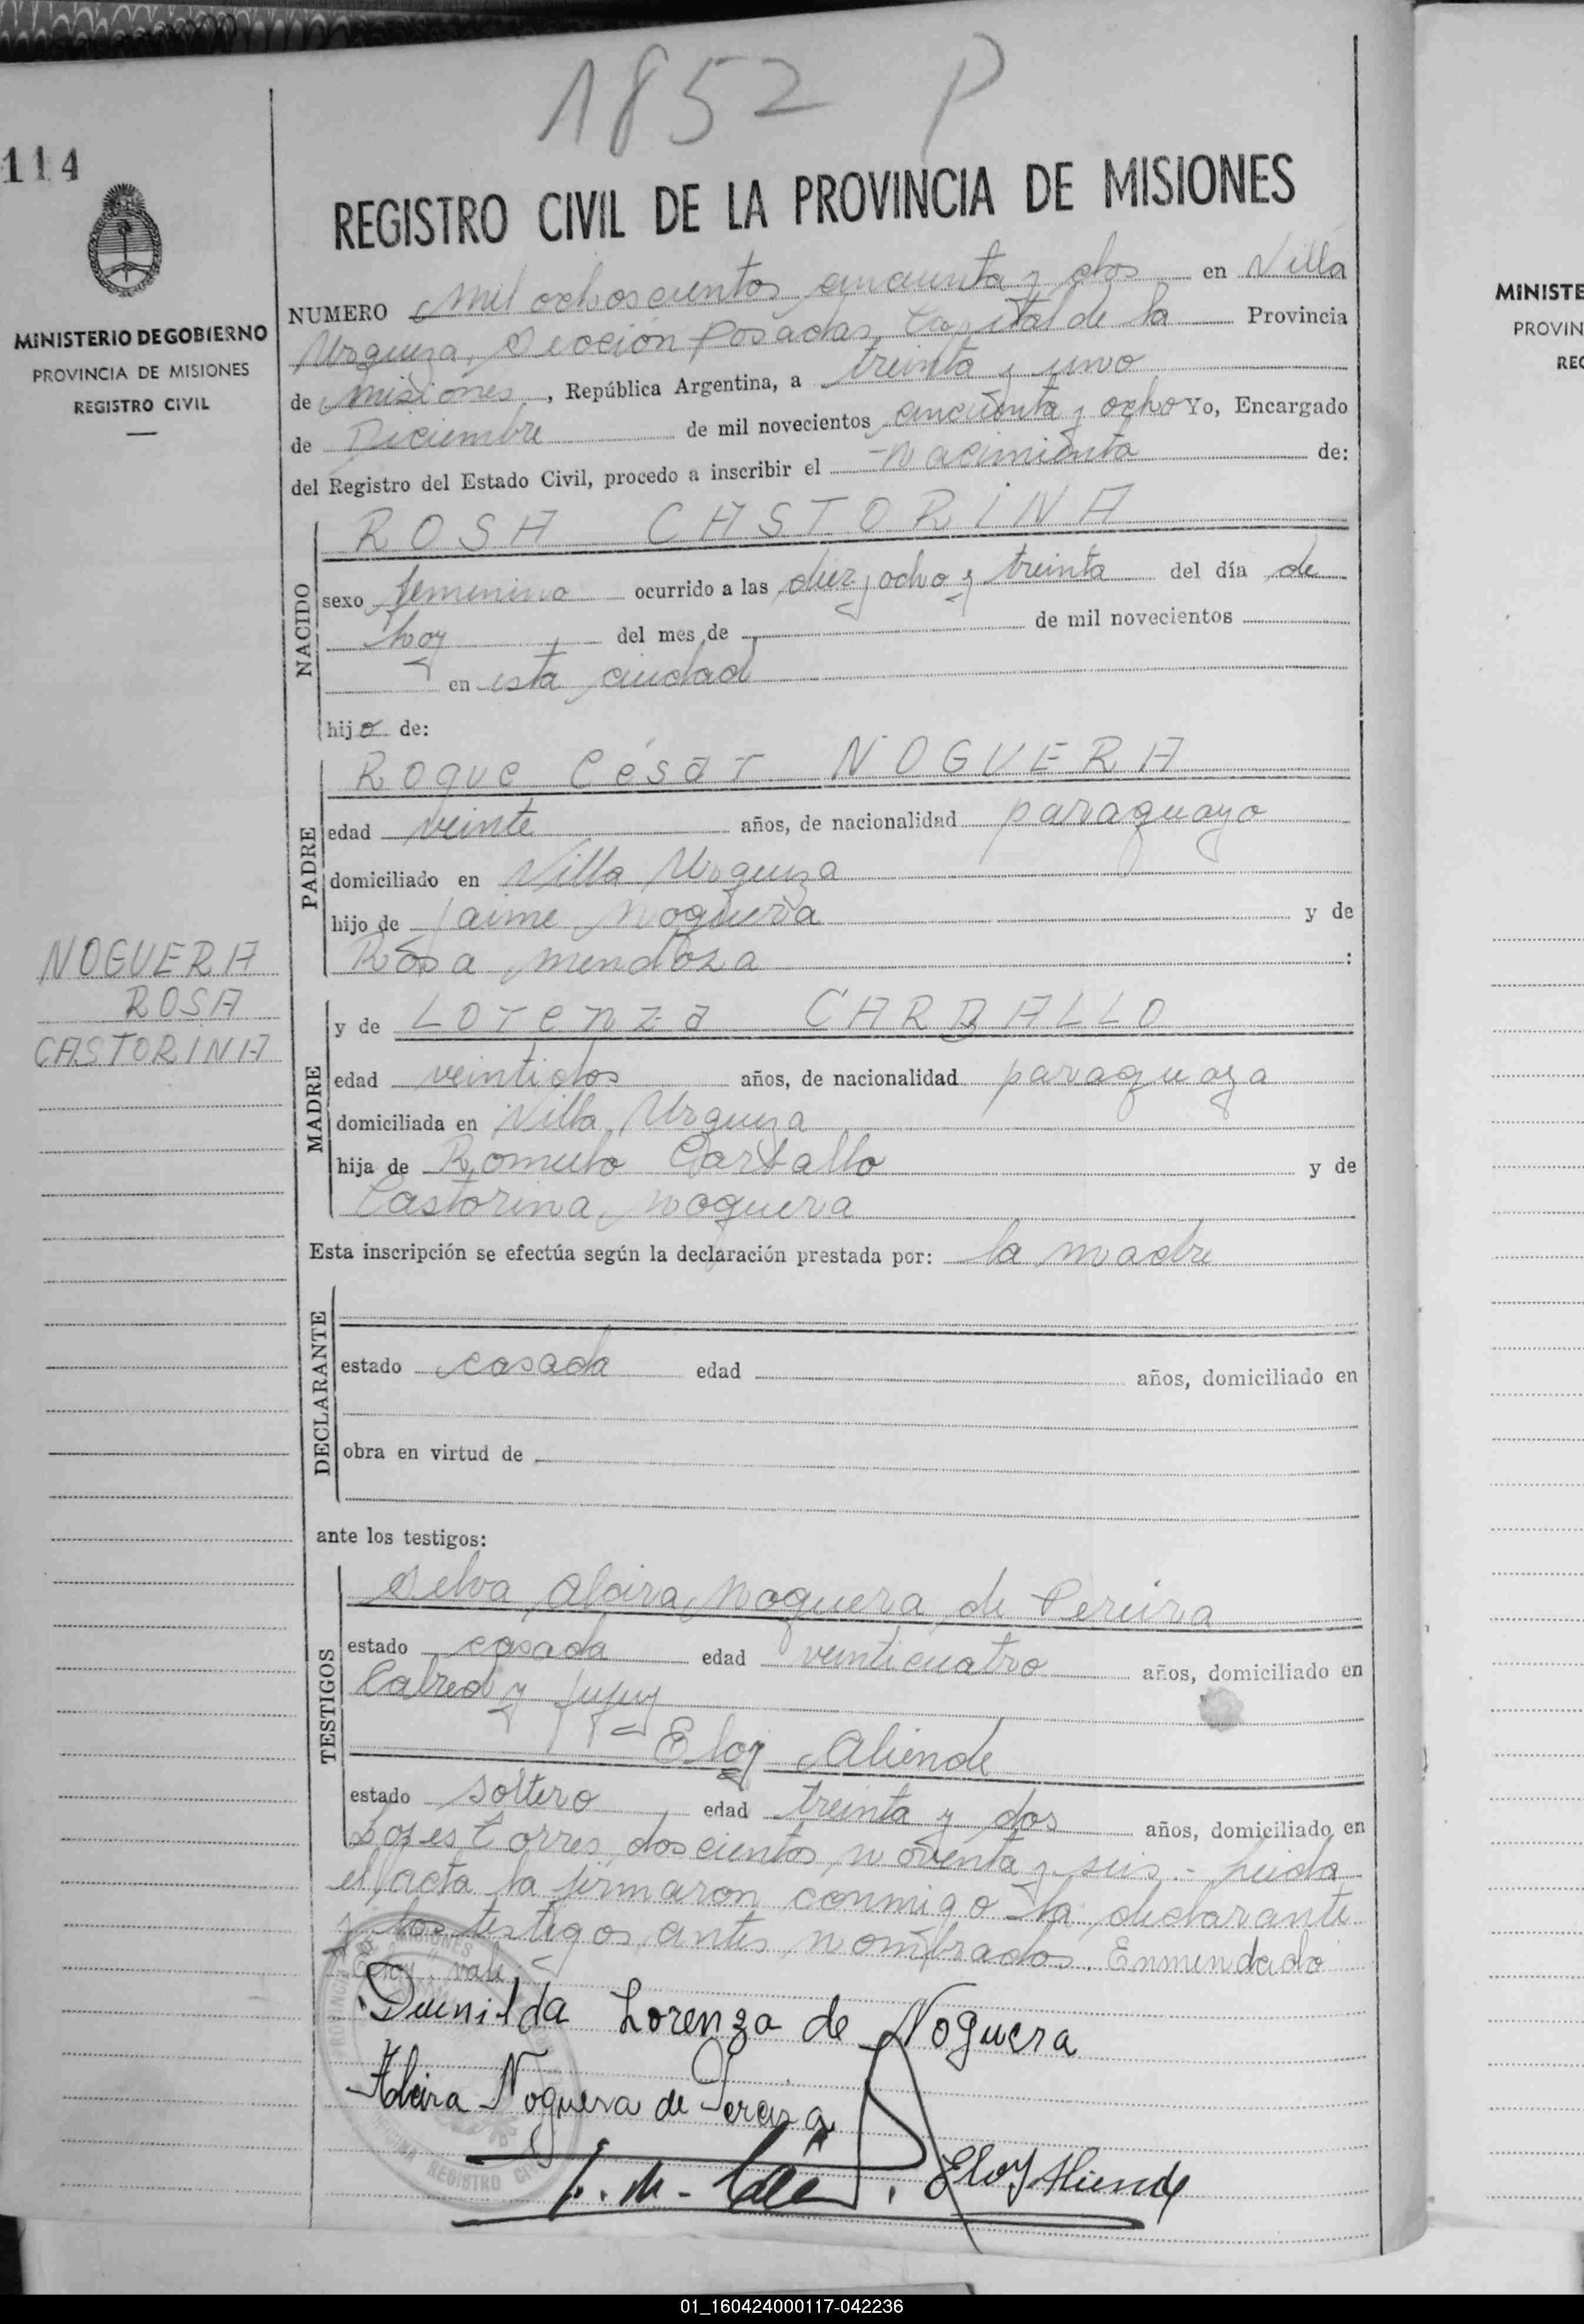 1852 P
114
REGISTRO CIVIL DE LA PROVINCIA DE MISIONES
MINISTERIO DE GOBIERNO
PROVINCIA DE MISIONES
REGISTRO CIVIL
NUMERO Mil ochoscientos cincuenta y dos en Villa
Urquiza, Sección Posadas, Capital de la Provincia
de Misiones, República Argentina, a treinta y uno
de Diciembre de mil novecientos cincuenta y ocho Yo, Encargado
del Registro del Estado Civil, procedo a inscribir el nacimiento de:
NACIDO
ROSA CASTORINA
sexo femenino ocurrido a las diez y ocho y treinta del día de
hoy del mes de de mil novecientos
en esta ciudad
hija de:
PADRE
Roque César NOGUERA
edad veinte años, de nacionalidad paraguayo
domiciliado en Villa Urquiza
hijo de Jaime Noguera y de
Rosa Mendoza :
NOGUERA
ROSA
CASTORINA
MADRE
y de Lorenza CARBALLO
edad veintidos años, de nacionalidad paraguaya
domiciliada en Villa Urquiza
hija de Romulo Carballo y de
Castorina Noguera
Esta inscripción se efectúa según la declaración prestada por: la madre
DECLARANTE
estado casada edad años, domiciliado en
obra en virtud de
ante los testigos:
TESTIGOS
Selva Alcira Noguera de Pereira
estado casada edad veinticuatro años, domiciliado en
Cabred y Jujuy
Eloy Aliende
estado soltero edad treinta y dos años, domiciliado en
Torres, doscientos noventa y seis.- Leida
el acta la firmaron conmigo la declarante
y los testigos antes nombrados. Enmendado
"Eloy" vale.
Lorenza de Noguera
Alcira Noguera de Pereira
Eloy Aliende
REGISTRO
MINISTE
PROVIN
REG
01_160424000117-042236